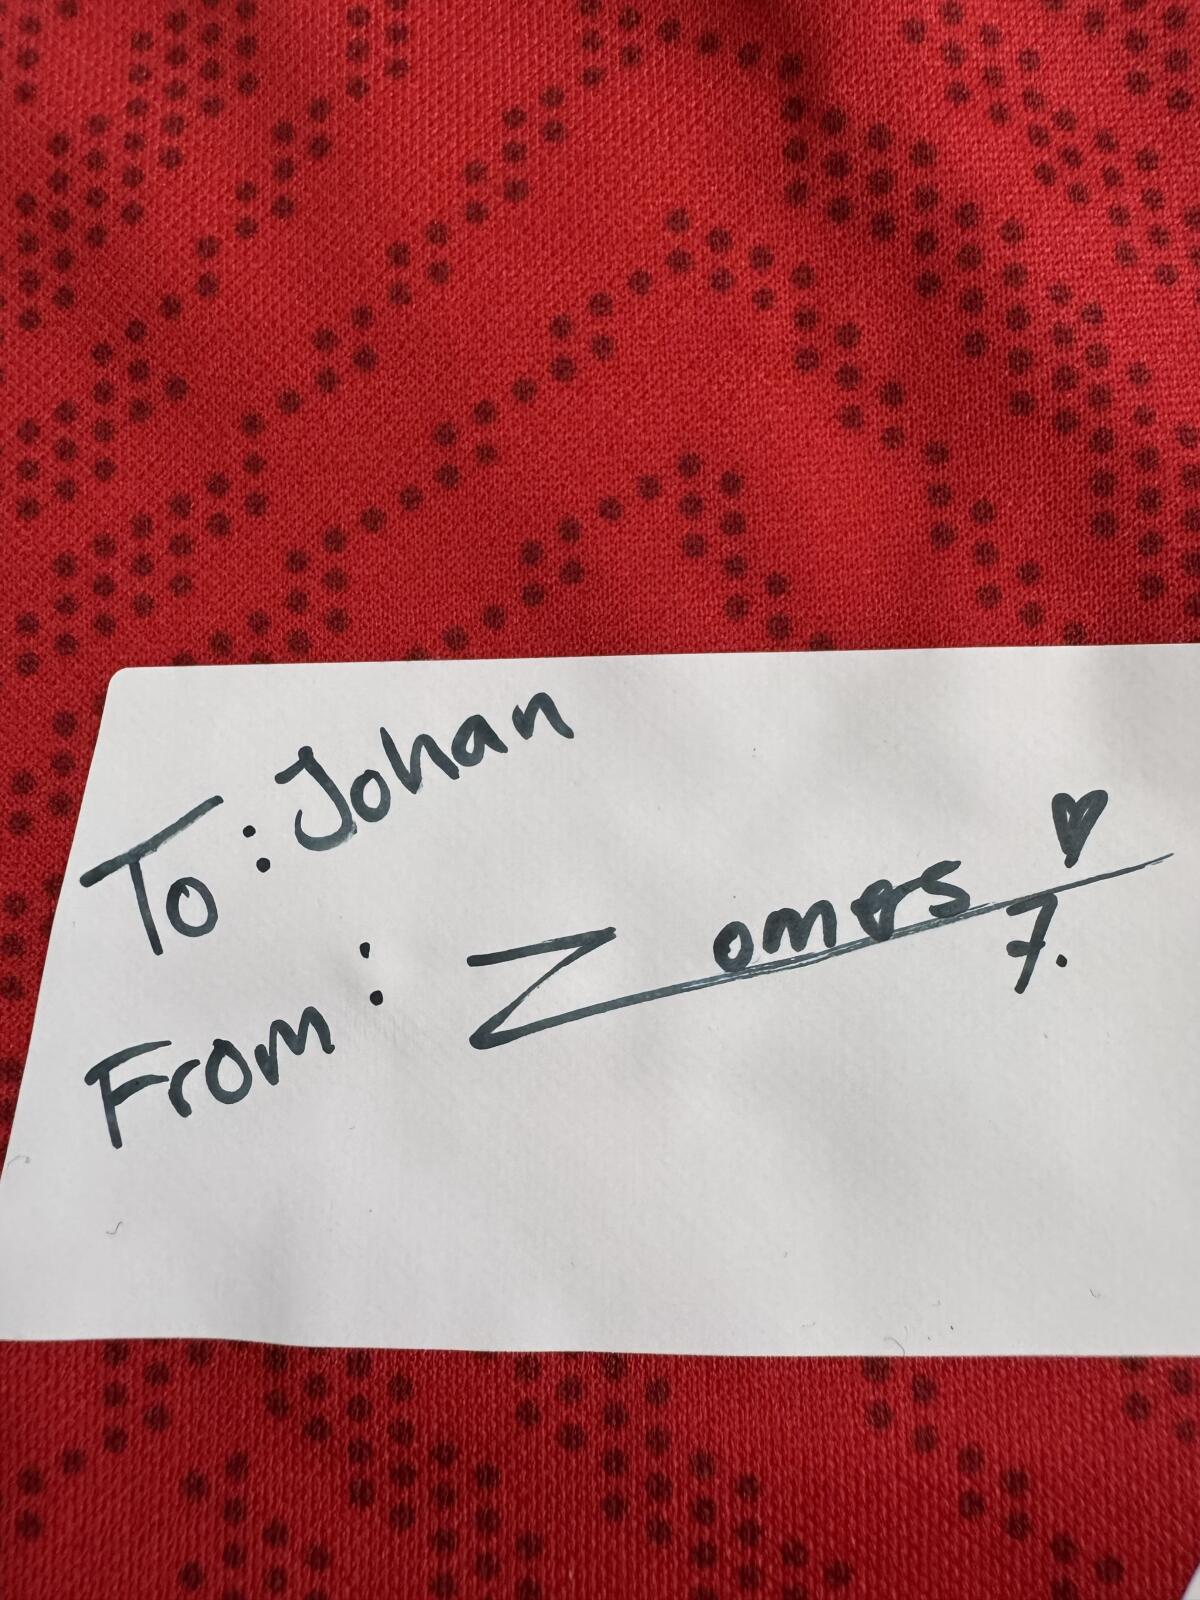 To: Johan
From: Zomers ♥
7.